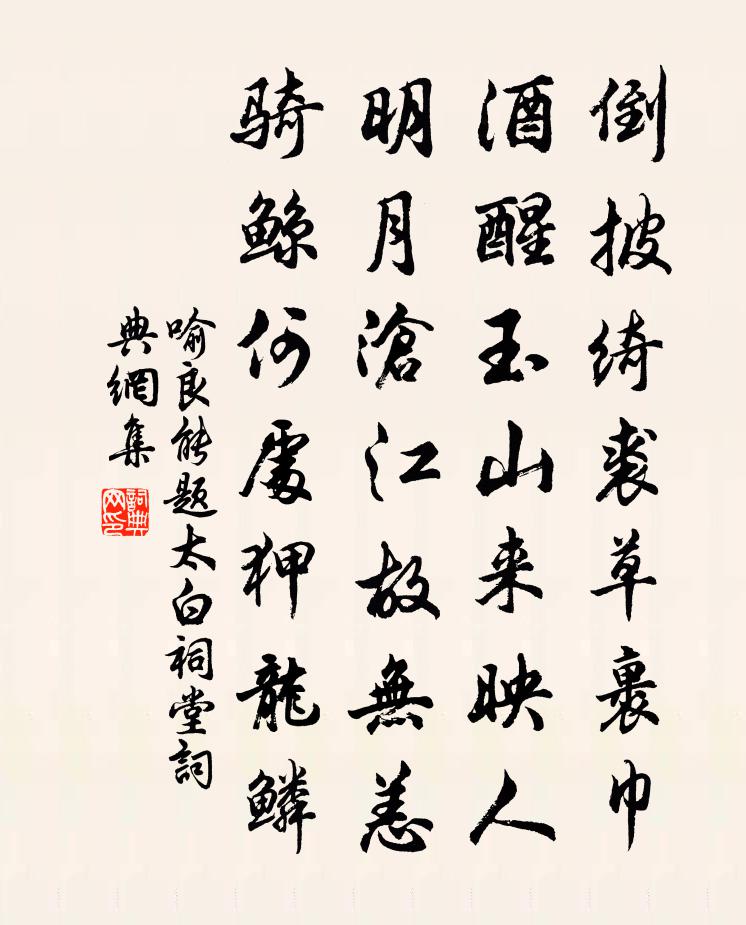 倒披绮裘草裹巾
酒醒玉山来映人
明月滄江故無恙
骑鲸何處狎龍鳞
喻良能题太白祠堂詞
典網集
詞典网印